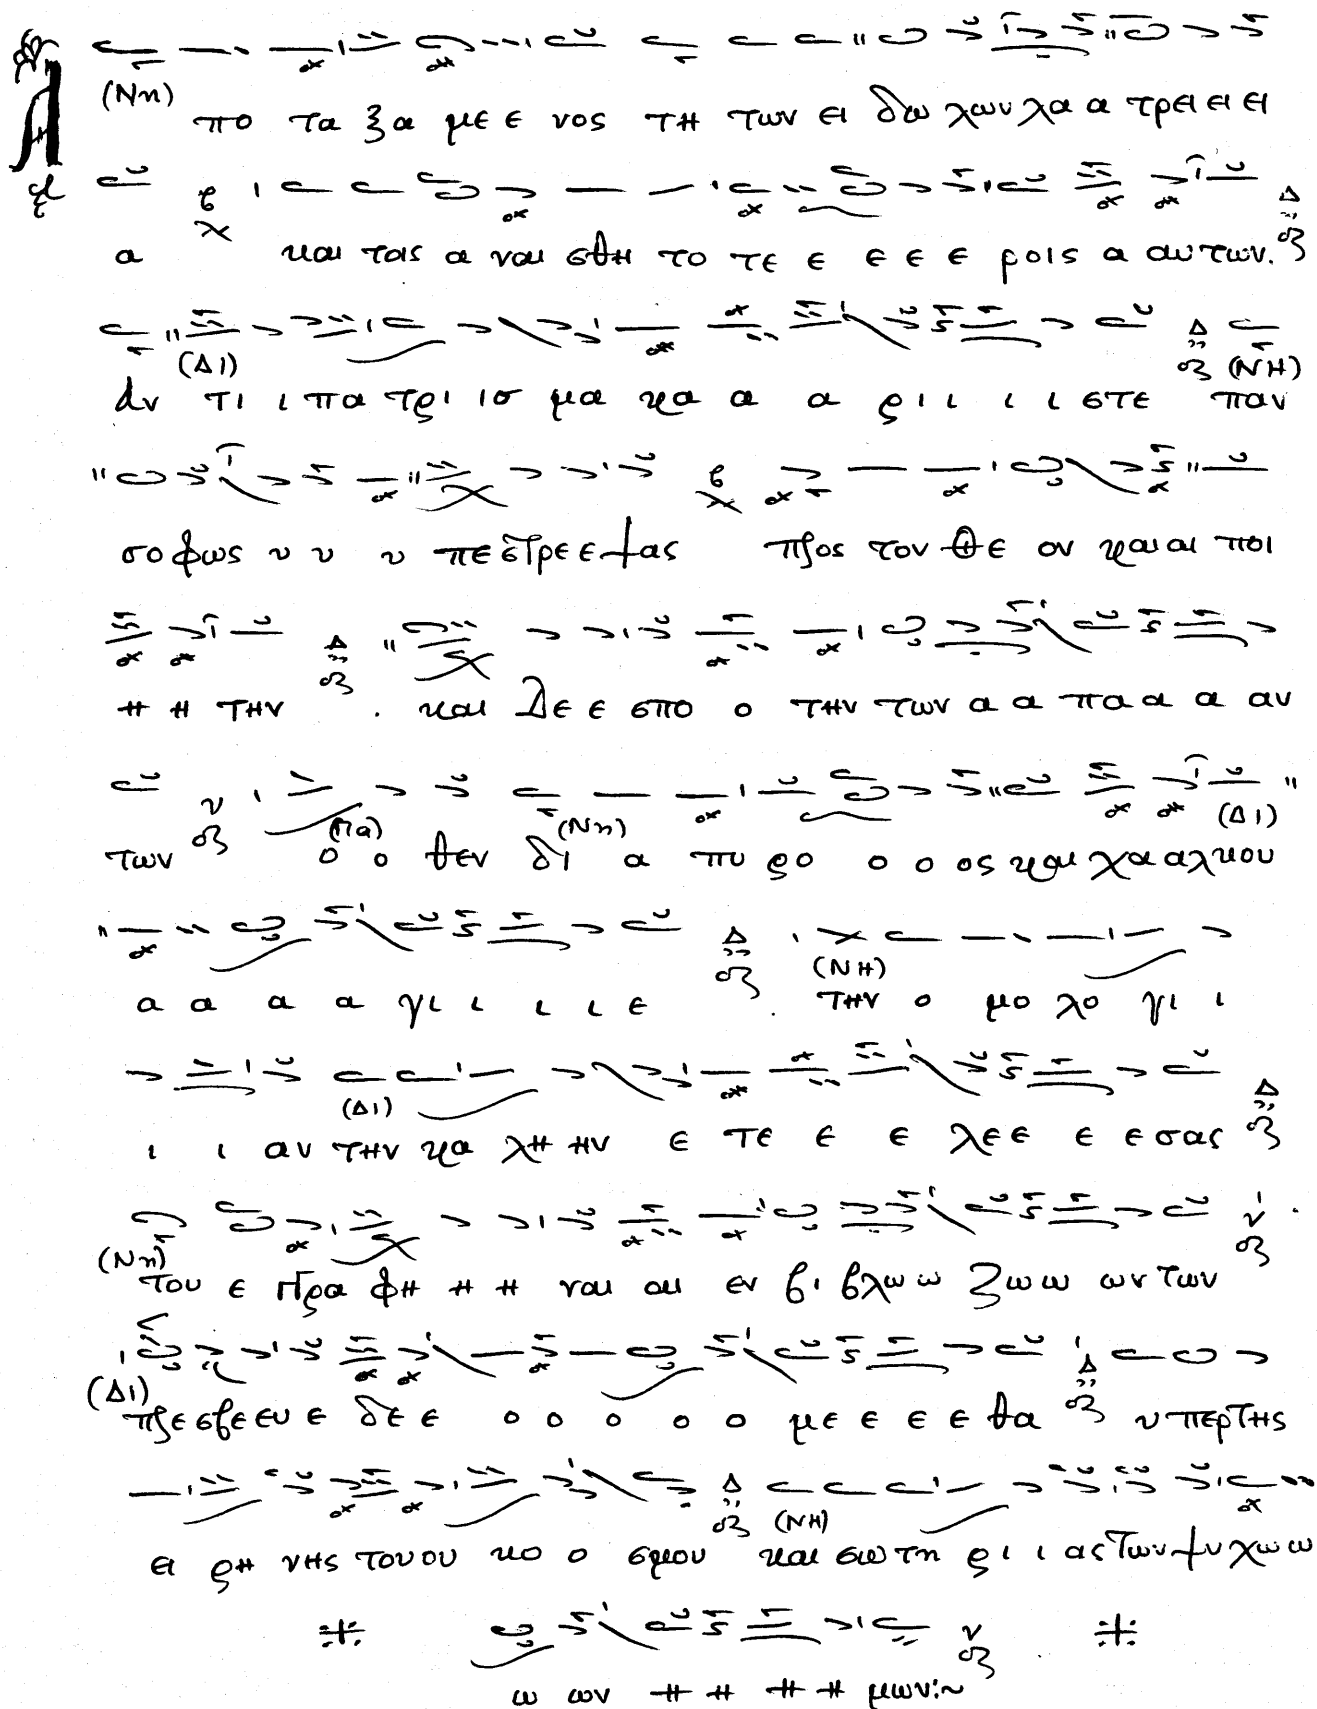 (Νη)
Α πο τα ξα με ε νος τη των ει δω λων λα α τρει ει ει
α και ταις α ναι σθη το τε ε ε ε ε ροις α αυ των.
(Δι) (ΝΗ)
Αν τι ι πα τρι ισ μα κα α α ρι ι ι ι στε παν
σο φως υ υ υ πε στρε ε ψας προς τον Θε ον και αι ποι
η η την . και Δε ε σπο ο την των α α πα α α αν
(Πα) (Νη) (Δι)
των ο ο θεν δι α πυ ρο ο ο ος και χα αλ κου
α α α α γι ι ι ι ε . την ο μο λο γι ι
(ΝΗ)
(Δι)
ι ι αν την κα λη ην ε τε ε ε λε ε ε ε σας
(Νη)
του ε γρα φη η η ναι αι εν βι βλω ω ζω ω ων των
(Δι)
πρε σβε ευ ε δε ε ο ο ο ο ο με ε ε ε θα υ περ της
(ΝΗ)
ει ρη νης του ου κο ο σμου και σω τη ρι ι ας των ψυ χω ω
ω ων η η η η μων:~